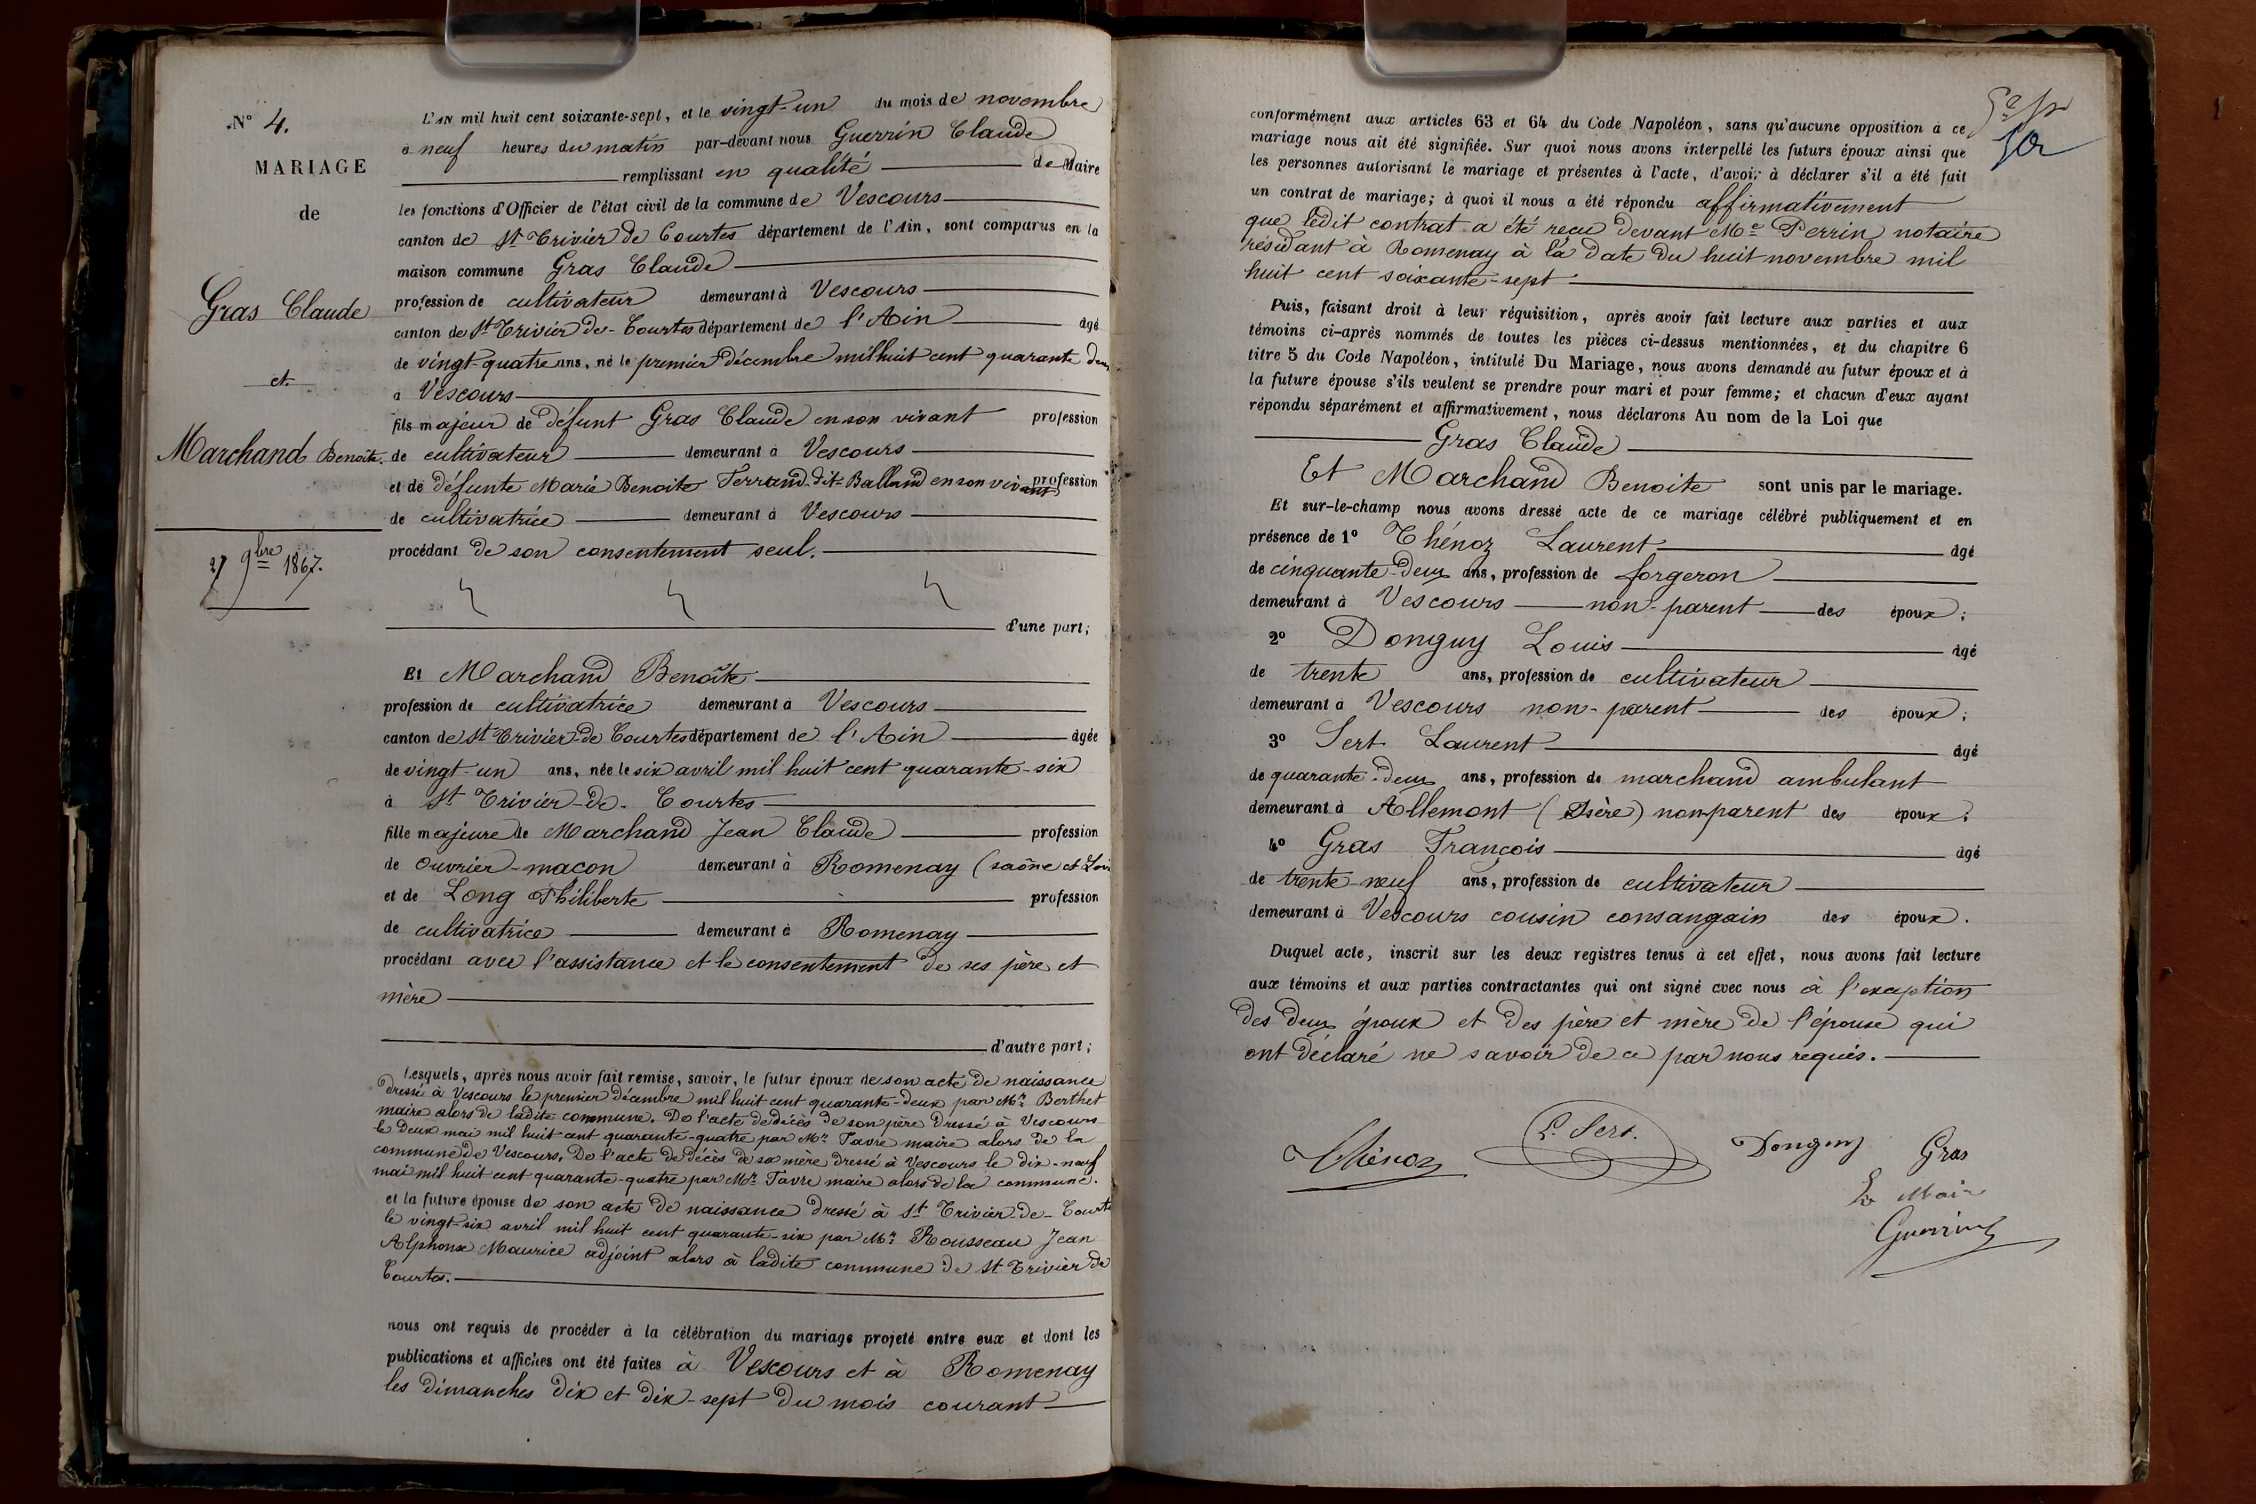 N° 4.
MARIAGE
de
Gras Claude
et
Marchand Benoite.
27 9bre 1867.
L'AN mil huit cent soixante-sept, et le vingt-un du mois de novembre
à neuf heures du matin par-devant nous Guerrin Claude
remplissant en qualité de Maire
les fonctions d'Officier de l'état civil de la commune de Vescours
canton de St Trivier de Courtes département de l'Ain, sont comparus en la
maison commune Gras Claude
profession de cultivateur demeurant à Vescours
canton de St Trivier-de-Courtes département de l'Ain âgé
de vingt-quatre ans, né le premier décembre mil huit cent quarante deux
à Vescours
fils majeur de défunt Gras Claude en son vivant profession
de cultivateur demeurant à Vescours
et de défunte Marie Benoite Ferrand dit Balland en son vivant profession
de cultivatrice demeurant à Vescours
procédant de son consentement seul.
d'une part;
Et Marchand Benoîte
profession de cultivatrice demeurant à Vescours
canton de St Trivier-de Courtes département de l'Ain âgée
de vingt-un ans, née le six avril mil huit cent quarante-six
à St Trivier-de-Courtes
fille majeure de Marchand Jean Claude profession
de ouvrier-maçon demeurant à Romenay (saône et Loire
et de Long Philiberte profession
de cultivatrice demeurant à Romenay
procédant avec l'assistance et le consentement de ses père et
mère
d'autre part;
Lesquels, après nous avoir fait remise, savoir, le futur époux de son acte de naissance
dressé à Vescours le premier décembre mil huit cent quarante-deux par Mr Berthet
maire alors de ladite commune. De l'acte de décès de son père dressé à Vescours
le deux mai mil huit cent quarante-quatre par Mr Favre maire alors de la
commune de Vescours. De l'acte de décès de sa mère dressé à Vescours le dix-neuf
mai mil huit cent quarante-quatre par Mr Favre maire alors de la commune.
et la future épouse de son acte de naissance dressé à St Trivier-de-Courtes
le vingt-six avril mil huit cent quarante-six par Mr Rousseau Jean
Alphonse Maurice adjoint alors à ladite commune de St Trivier de
Courtes.
nous ont requis de procéder à la célébration du mariage projeté entre eux et dont les
publications et affiches ont été faites à Vescours et à Romenay
les dimanches dix et dix-sept du mois courant
conformément aux articles 63 et 64 du Code Napoléon, sans qu'aucune opposition à ce
mariage nous ait été signifiée. Sur quoi nous avons interpellé les futurs époux ainsi que
les personnes autorisant le mariage et présentes à l'acte, d'avoir à déclarer s'il a été fait
un contrat de mariage; à quoi il nous a été répondu affirmativement
que ledit contrat a été reçu devant Me Perrin notaire
résidant à Romenay à la date du huit novembre mil
huit cent soixante-sept
Puis, faisant droit à leur réquisition, après avoir fait lecture aux parties et aux
témoins ci-après nommés de toutes les pièces ci-dessus mentionnées, et du chapitre 6
titre 5 du Code Napoléon, intitulé Du Mariage, nous avons demandé au futur époux et à
la future épouse s'ils veulent se prendre pour mari et pour femme; et chacun d'eux ayant
répondu séparément et affirmativement, nous déclarons Au nom de la Loi que
Gras Claude
Et Marchand Benoite sont unis par le mariage.
Et sur-le-champ nous avons dressé acte de ce mariage célébré publiquement et en
présence de 1° Thénoz Laurent âgé
de cinquante-deux ans, profession de forgeron
demeurant à Vescours non-parent des époux;
2° Donguy Louis âgé
de trente ans, profession de cultivateur
demeurant à Vescours non-parent des époux;
3° Sert Laurent âgé
de quarante-deux ans, profession de marchand ambulant
demeurant à Allemont (Isère) non-parent des époux;
4° Gras François âgé
de trente-neuf ans, profession de cultivateur
demeurant à Vescours cousin consanguin des époux.
Duquel acte, inscrit sur les deux registres tenus à cet effet, nous avons fait lecture
aux témoins et aux parties contractantes qui ont signé avec nous à l'exception
des deux époux et des père et mère de l'épouse qui
ont déclaré ne savoir de ce par nous requis.
Thénoz L. Sert. Donguy Gras
Le Maire
Guerrin